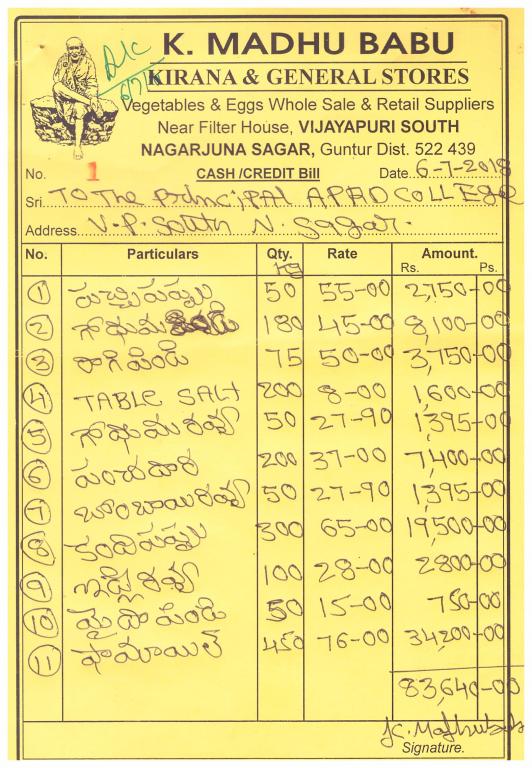 K. MADHU BABU
KIRANA & GENERAL STORES
Vegetables & Eggs Whole Sale & Retail Suppliers
Near Filter House, VIJAYAPURI SOUTH
NAGARJUNA SAGAR, Guntur Dist. 522 439
No. 1 CASH /CREDIT Bill Date 6-7-2018
Sri. TO The principal APRD COLLEGE
Address V.P. South N. Sagar.
No. Particulars Qty. Rate Amount.
kg Rs. Ps.
1 పచ్చిపప్పు 50 55-00 2,750-00
2 గోధుమపిండి 180 45-00 8,100-00
3 రాగి పిండి 75 50-00 3,750-00
4 TABLE SALT 200 8-00 1,600-00
5 గోధుమరవ్వ 50 27-90 1395-00
6 పంచదార 200 37-00 7,400-00
7 బొంబాయిరవ్వ 50 27-90 1395-00
8 కందిపప్పు 300 65-00 19,500-00
9 ఇడ్లీరవ్వ 100 28-00 2800-00
10 మైదాపిండి 50 15-00 750-00
11 పామాయిల్ 450 76-00 34,200-00
83,640-00
K. Madhubabu
Signature.